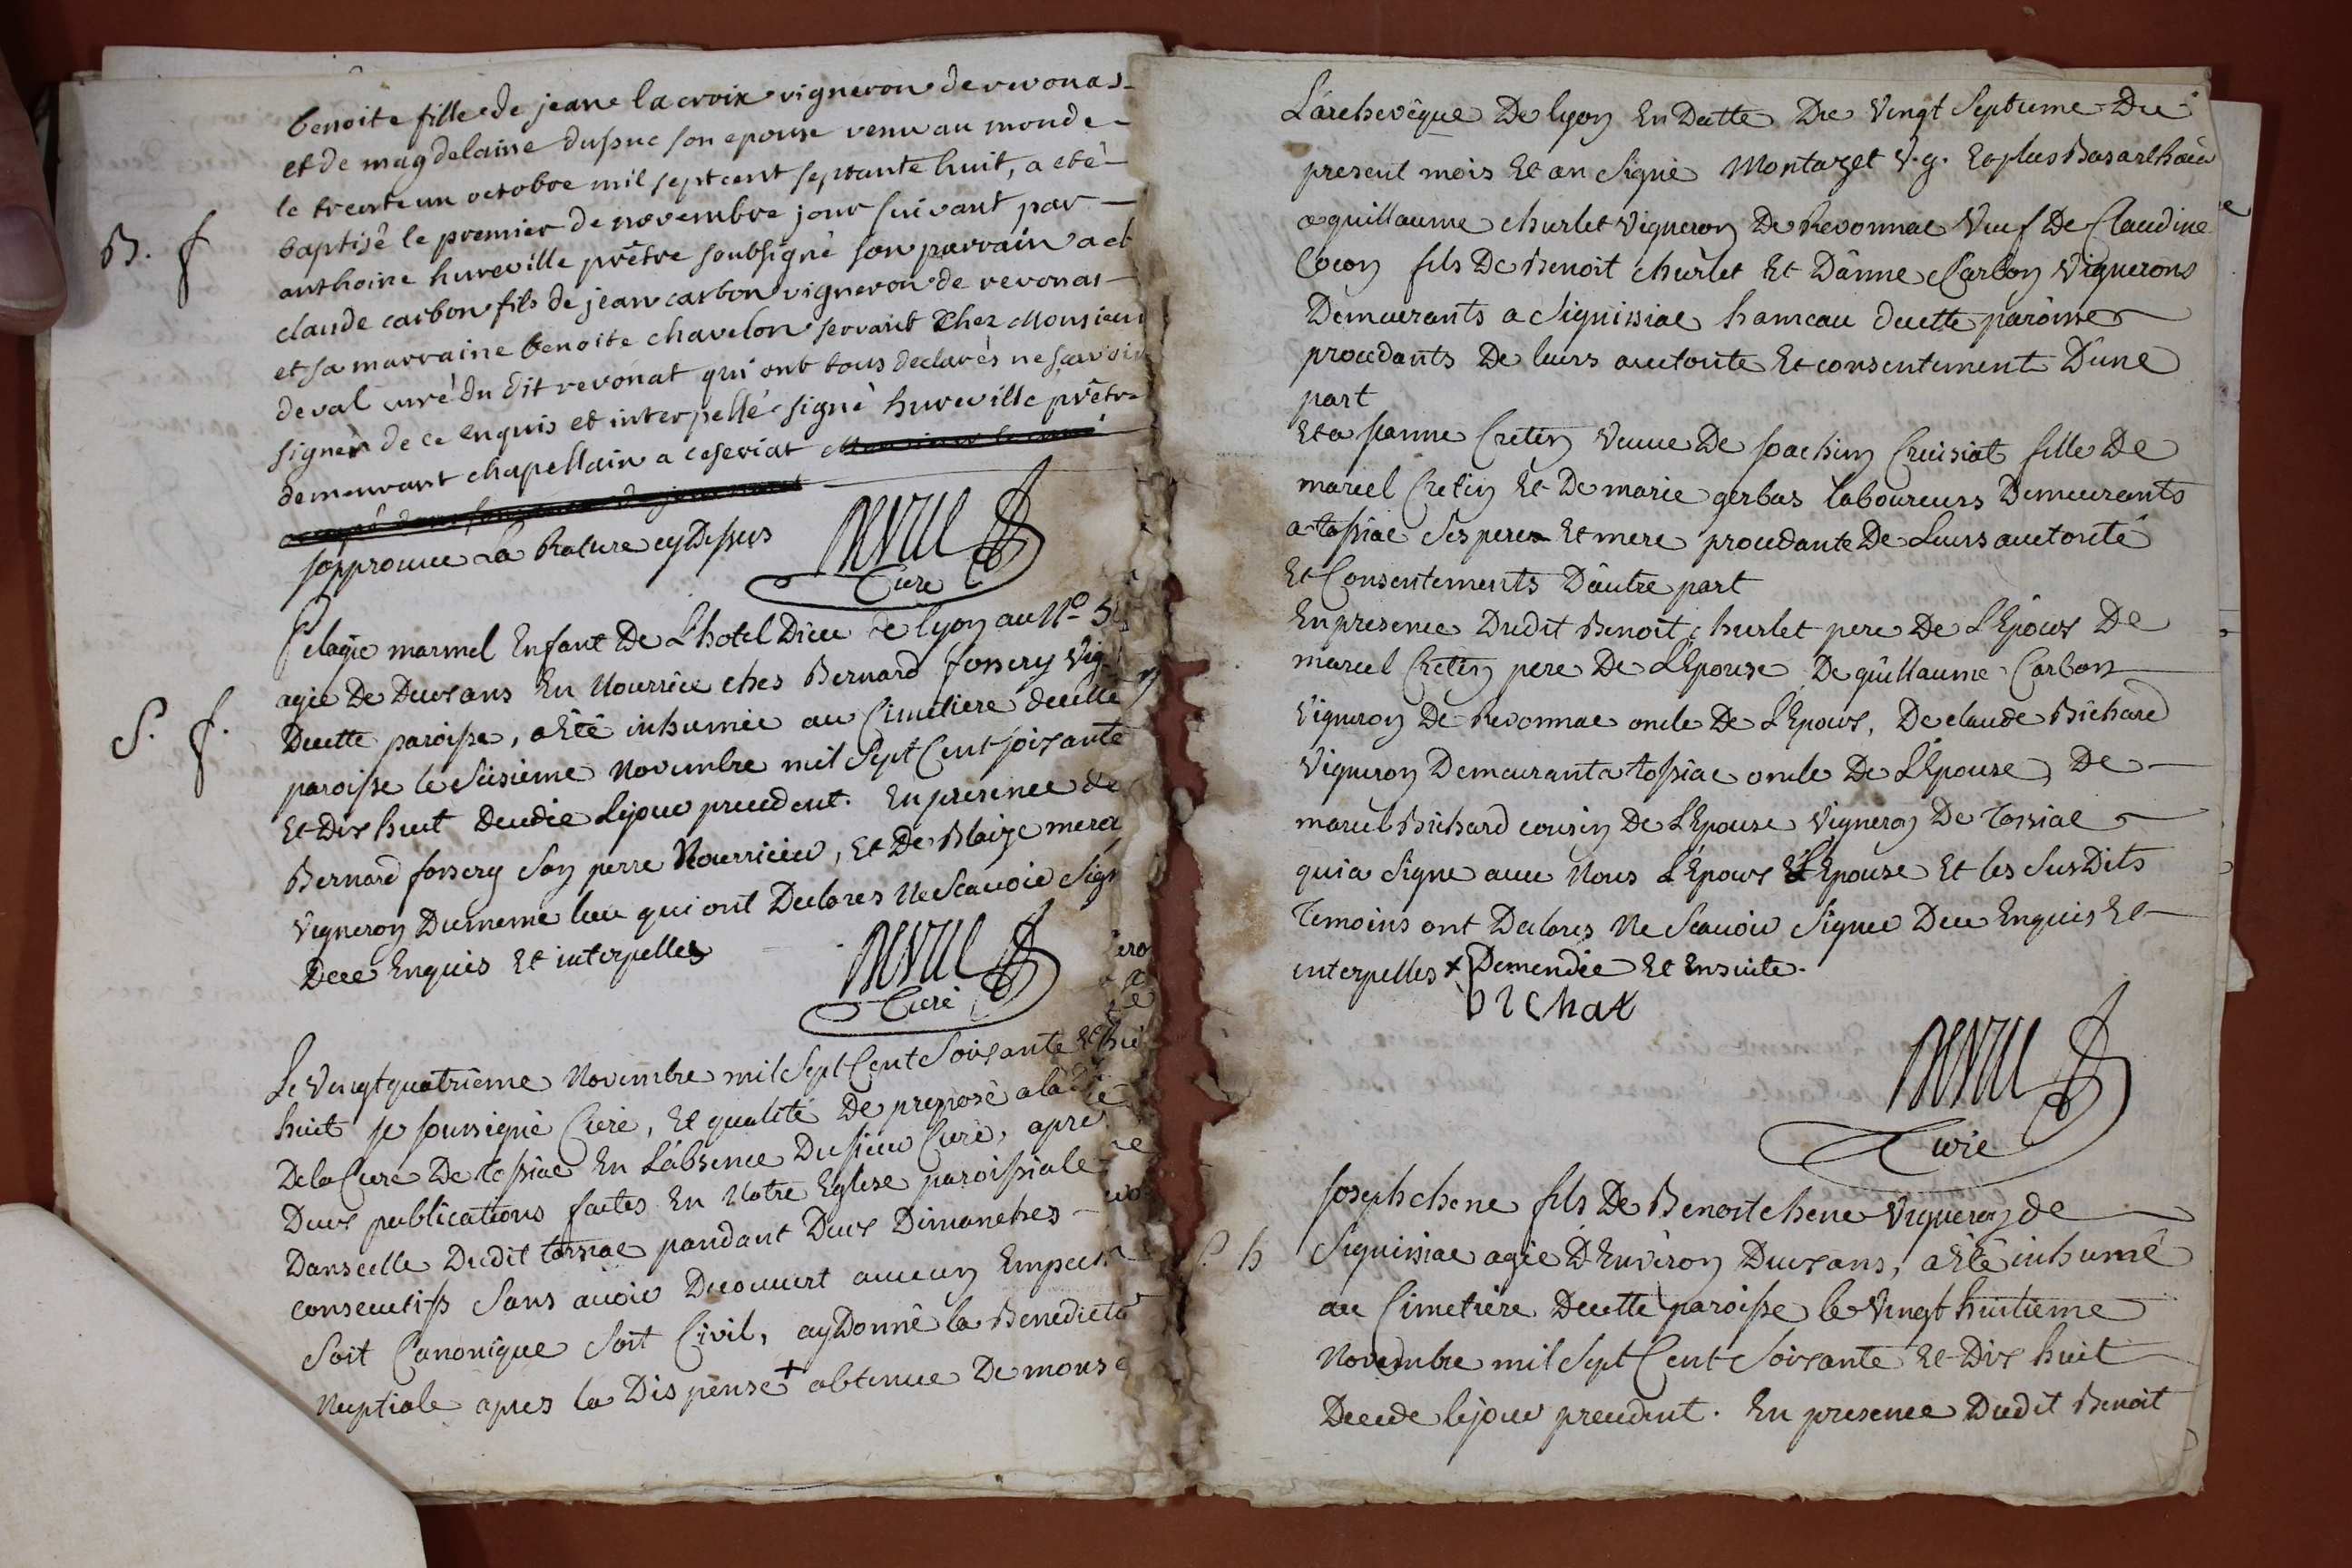 benoite fille de jeane lacroix vigneron de revonas
et de magdelaine dussuc son epouse venu au monde
le trente un octobre mil sept cent septante huit, a eté
B. f baptisé le premier de novembre jour suivant par
anthoine hureville prêtre soubsigné son parrain a et
claude carbon fils de jean carbon vigneron de revonas
et sa marraine benoite chavelon servant chez Monsieur
deval curé du dit revonat qui ont tous declarés ne scavoir
signer de ce enquis et interpellé signé hureville prêtre
demeurant chapellain a ceseriat
J'approuve La Rature cy Dessus
Deval
Curé
Pelagie marmel Enfant De L'hotel Dieu de lyon au N.o 5
agée De Deux ans En Nourrice ches Bernard fonsery Vig
S. f. Decette paroisse, aété inhumée au Cimetiere decette
paroisse le Sixieme Novembre mil Sept Cent soixante
Et Dix huit Decedée Lejour precedent. En presence de
Bernard fonsery Son perre Nourricier, Et De Blaize mera
Vigneron Dumeme lieu qui ont Declares Ne Scavoir Sign
Dece Enquis Et interpelles
Deval
Curé
Le Vingt quatrieme Novembre mil Sept Cent Soixante Et
huit je soussigné Curé, Et qualité De preposé a la
De la Cure De tossiac En L'absence Du sieur Curé, apre
Deux publications faites En Notre Eglise paroissiale
Dans celle Dudit tossiac pandant Deux Dimanches
consecutifs Sans avoir Decouvert aucun Empech
Soit Canonique Soit Civil, ay Donné la Benedicti
Nuptiale apres la Dispense + obtenue De mons
L'archevêque De lyon En Datte Du Vingt Septieme Du
present mois Et an Signé Montazet V. g. Et plus Bas
a guillaume churlet Vigneron De Revonnac Veuf De Claudine
Cocon fils De Benoit churlet Et D'anne Carbon Vignerons
Demeurants a Signissiac hameau decette paroisse
procedants De leurs auctorité Et consentement D'une
part
Et a Janne Cretin Veuve De Joachim Creusiat fille De
marcel Cretin Et De marie gerbas laboureurs Demeurants
a tossiac Ses pere Et mere procedante De Leurs auctorité
Et Consentements D'autre part
En presence Dudit Benoit churlet pere De L'Epoux De
marcel Cretin pere De L'Epouse De guillaume Carbon
Vigneron De Revonnac oncle De L'Epoux, De claude Bichard
Vigneron Demeurant a tossiac oncle De L'Epouse, De
marcel Bichard cousin De L'Epouse Vigneron De Tossiac
qui a Signé avec Nous L'Epoux L'Epouse Et les Sus Dits
Temoins ont Declares Ne Scavoir Signer Dece Enquis Et
interpelles + Demendée Et Ensuite.
bichat
Deval
Curé
Joseph chene fils De Benoit chene Vigneron de
S. h Signissiac agée D'Environ Deux ans, aété inhumé
au Cimetiere Decette paroisse le Vingt huitieme
Novembre mil Sept Cent Soixante Et Dix huit
Decede lejour precedent. En presence Dudit Benoit